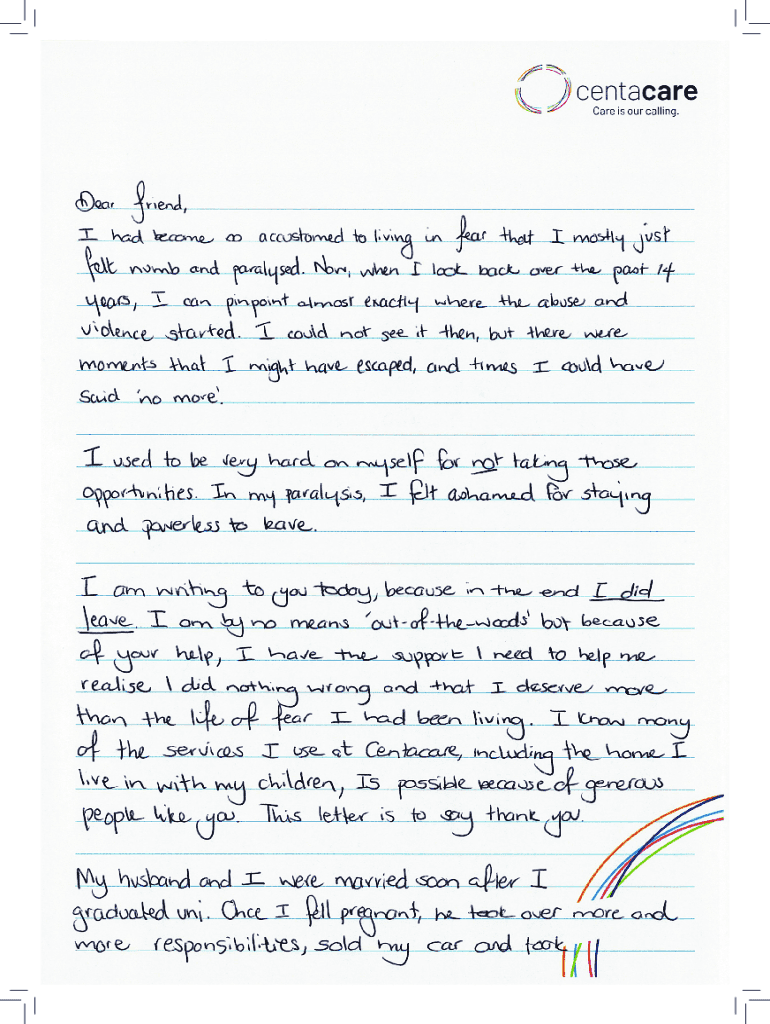 centacare
Care is our calling.
Dear friend,
I had become so accustomed to living in fear that I mostly just
felt numb and paralysed. Now, when I look back over the past 14
years, I can pinpoint almost exactly where the abuse and
violence started. I could not see it then, but there were
moments that I might have escaped, and times I could have
said 'no more'.
I used to be very hard on myself for not taking those
opportunities. In my paralysis, I felt ashamed for staying
and powerless to leave.
I am writing to you today, because in the end I did
leave. I am by no means 'out-of-the-woods' but because
of your help, I have the support I need to help me
realise I did nothing wrong and that I deserve more
than the life of fear I had been living. I know many
of the services I use at Centacare, including the home I
live in with my children, Is possible because of generous
people like you. This letter is to say thank you.
My husband and I were married soon after I
graduated uni. Once I fell pregnant, he took over more and
more responsibilities, sold my car and took